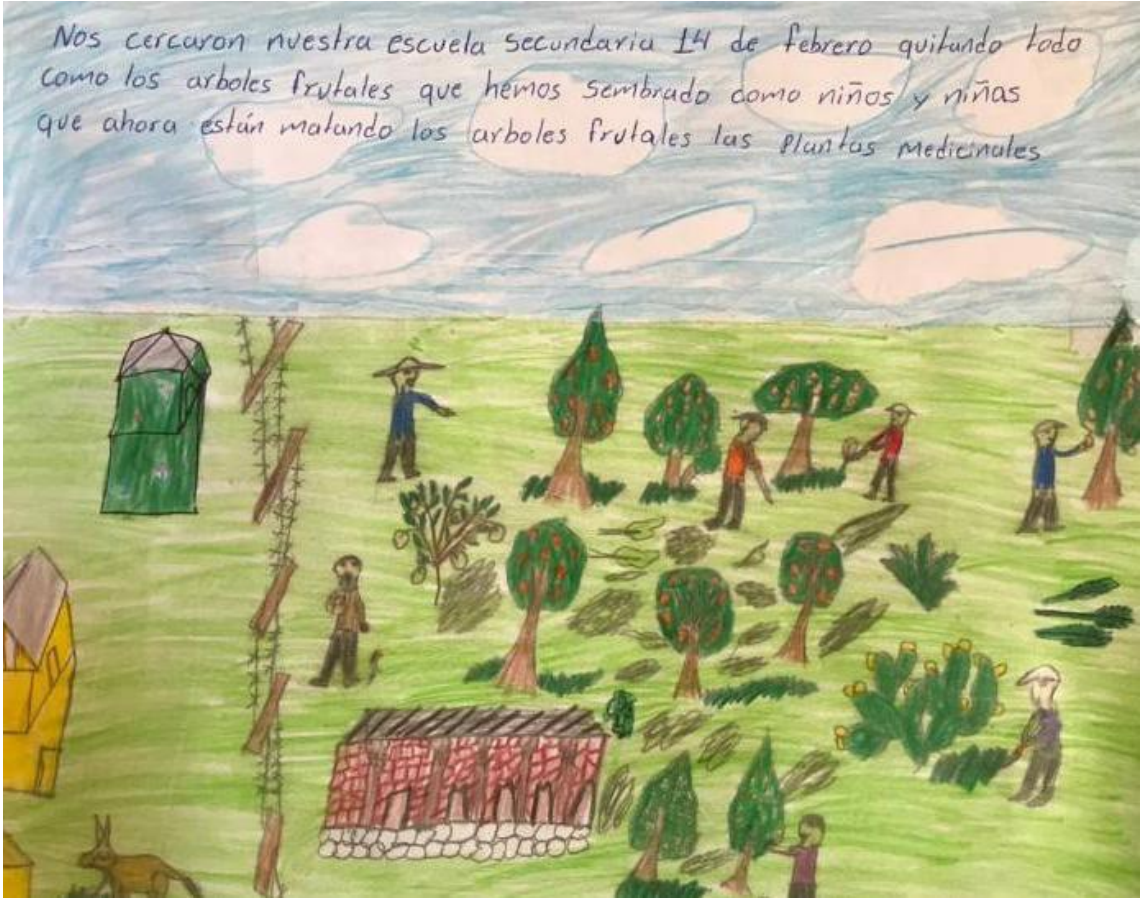 Nos cercaron nuestra escuela secundaria 14 de febrero quitando todo
como los arboles frutales que hemos sembrado como niños y niñas
que ahora están matando los arboles frutales las plantas medicinales